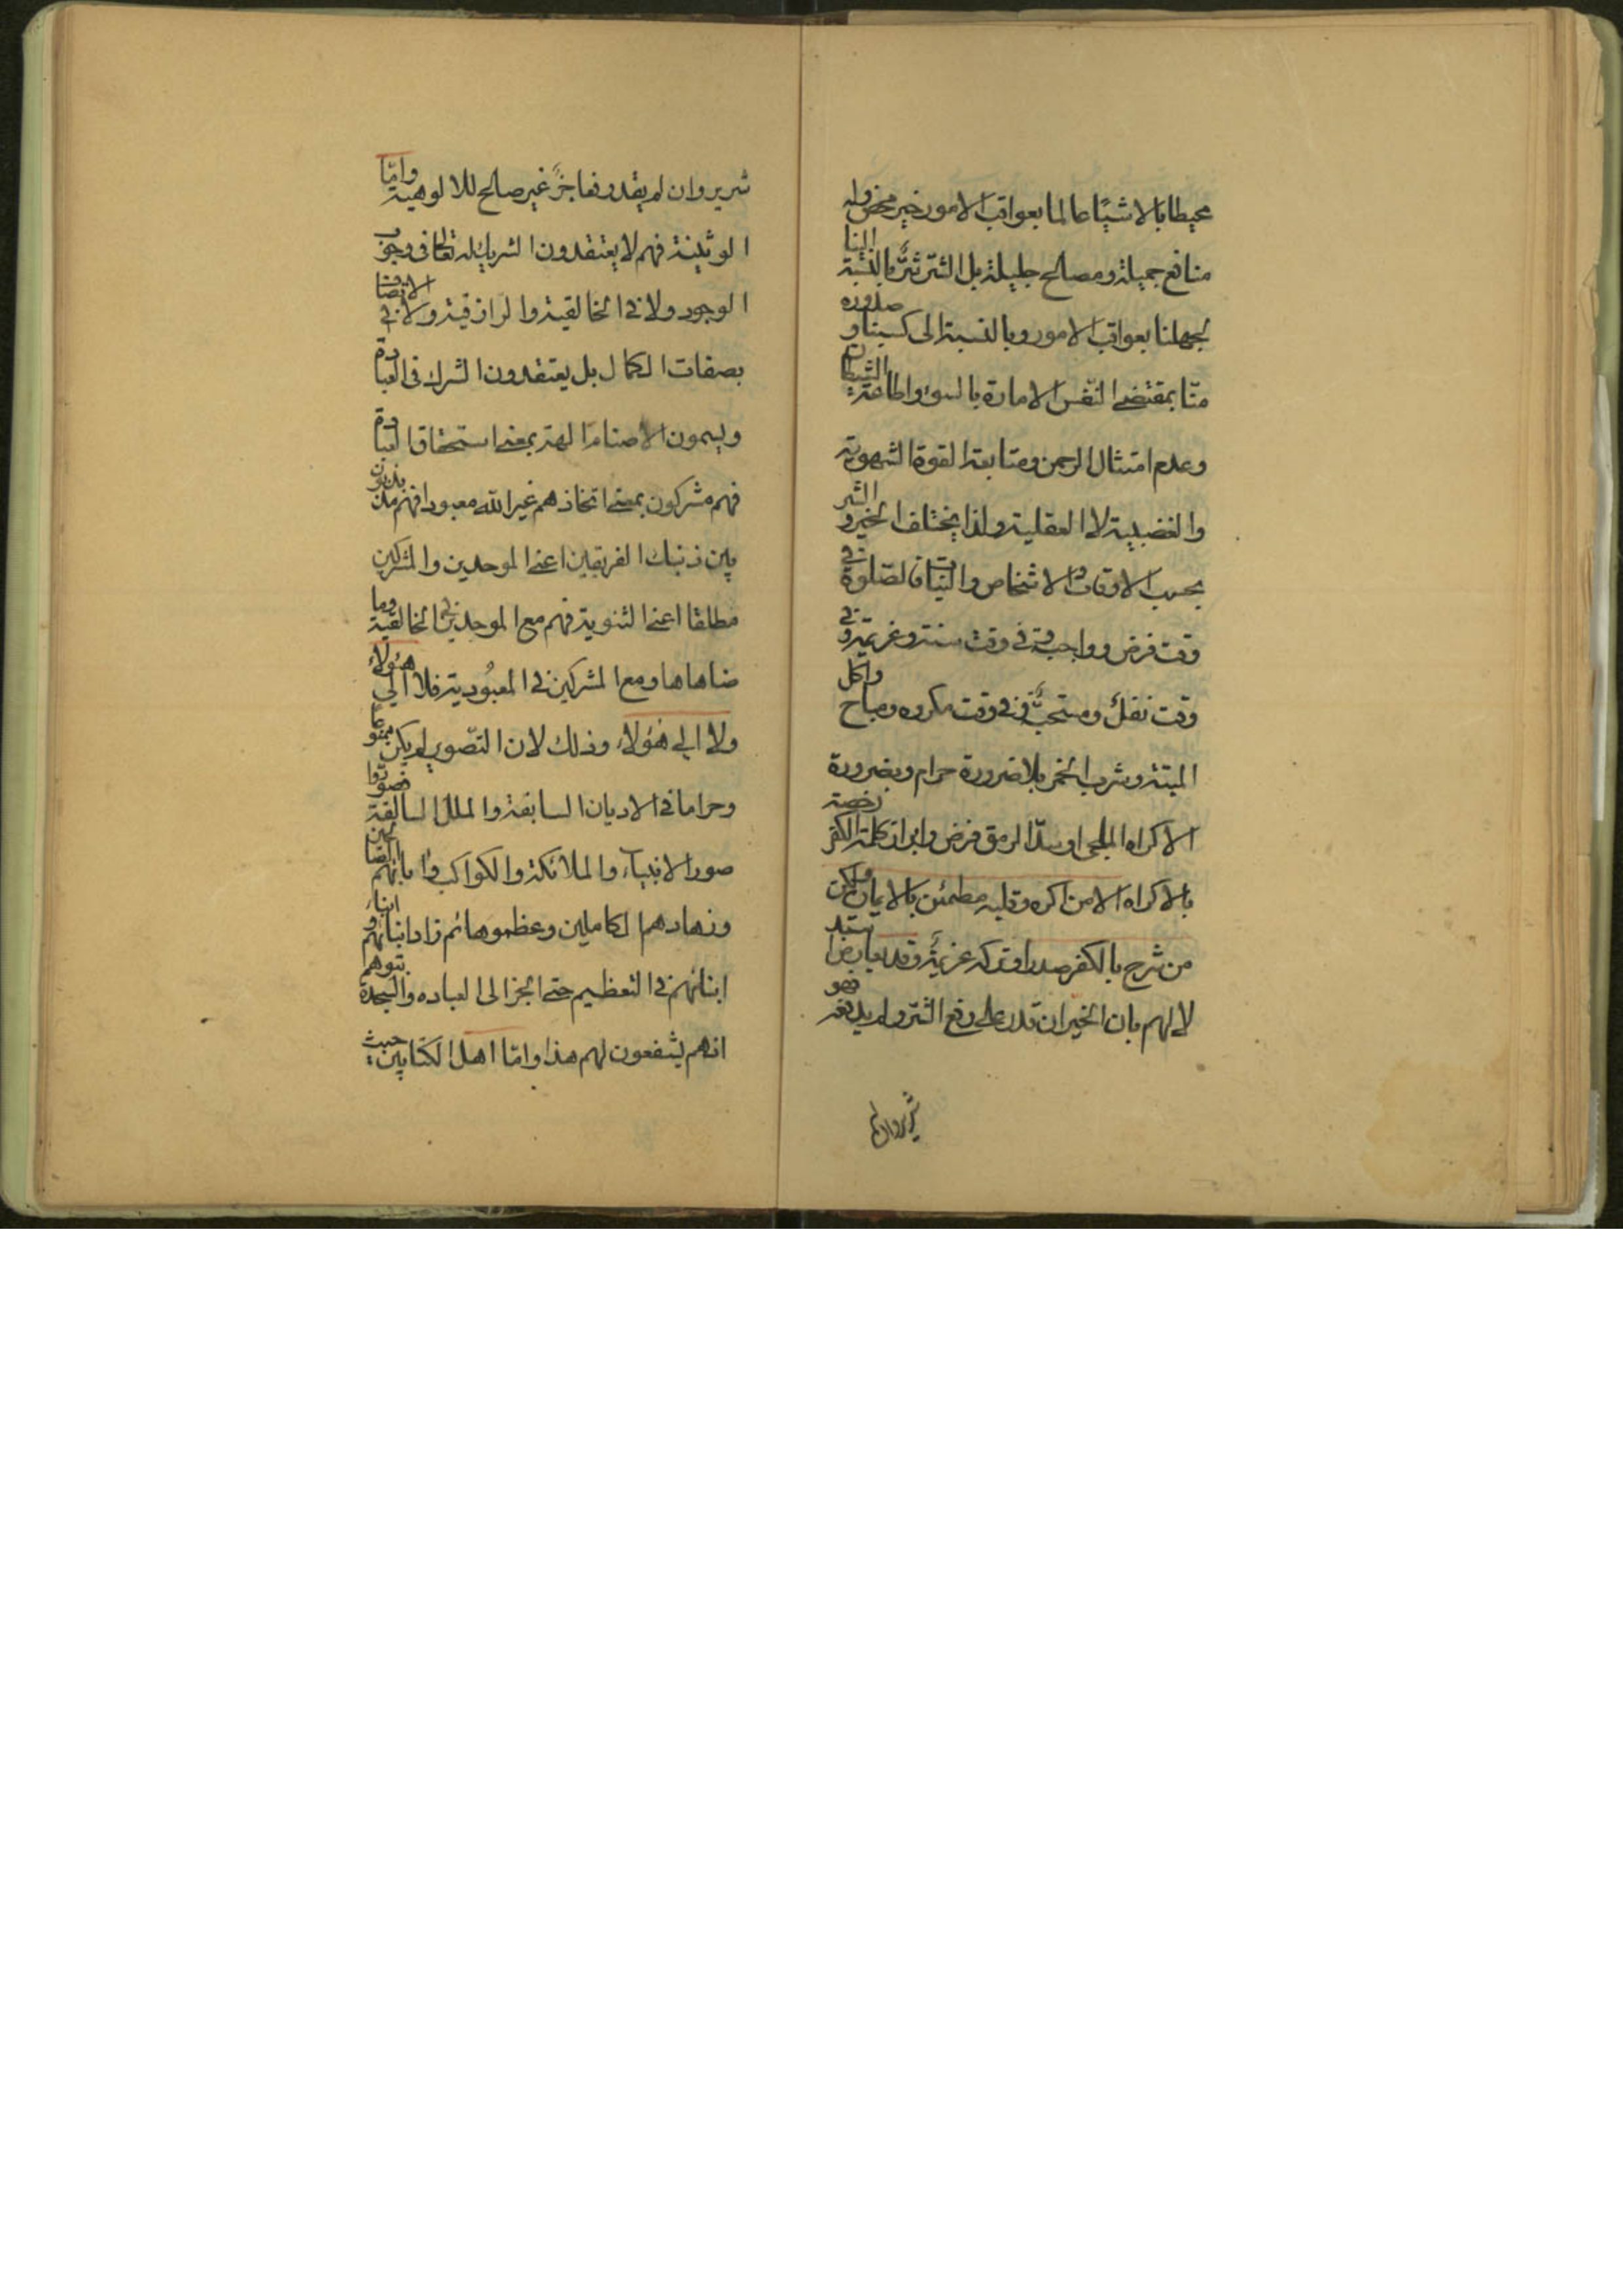 محيطا بالاشيا عالما بعواقب الامور خير محض وله
منافع جميلة ومصالح جليلة بل الشر شر بالنسبة الينا
لجهلنا بعواقب الامور وبالنسبة الى كسبنا و صدوره
منا بمقتضى النفس الامارة بالسوء واطاعة الشيطان
وعدم امتثال الرحمن ومتابعة القوة الشهوية
والغضبية لا العقلية ولذا يختلف الخير و الشر
بحسب الاوقات والاشخاص والنيات فالصلوة في
وقت فرض وواجب وفي وقت سنة وعزيمة و في
وقت نفل ومستحب وفي وقت مكروه ومباح واكل
الميتة وشرب الخمر بلا ضرورة حرام وبضرورة
الاكراه الملجى او سد الرمق فرض وابراز كلمة الكفر رخصة
بالاكراه الا من اكره وقلبه مطمئن بالايمان ولكن
من شرح بالكفر صدرا وتركه عزيمة وقد يعارض
لا لهم بان الخير ان قدر على رفع الشر ولم يدفعه فهو
شرير وان لم
شرير وان لم يقدر فعاجز غير صالح للالوهية واما
الوثنية فهم لا يعتقدون الشريك له تعالى في وجوب
الوجود ولا في الخالقية والرازقية ولا في الاتصاف
بصفات الكمال بل يعتقدون الشرك في العبادة
ويسمون الاصنام الهة بمعنى استحقاق العبادة
فهم مشركون بمعنى اتخاذهم غير الله معبودا فهم مذبذبون
بين ذينك الفريقين اعنى الموحدين والمشركين
مطلقا اعنى الثنوية فهم مع الموحدين في الخالقية وما
ضاهاها ومع المشركين في المعبودية فلا الى هؤلاء
ولا الى هؤلاء وذلك لان التصوير لم يكن ممنوعا
وحراما في الاديان السابقة والملل السالفة فصوروا
صور الانبياء والملائكة والكواكب و ابائهم الصالحين
وزهادهم الكاملين وعظموها ثم زاد ابنائهم و ابناء
ابنائهم في التعظيم حتى انجر الى العباده والسجدة بتوهم
انهم يشفعون لهم هذا واما اهل الكتابين حيث